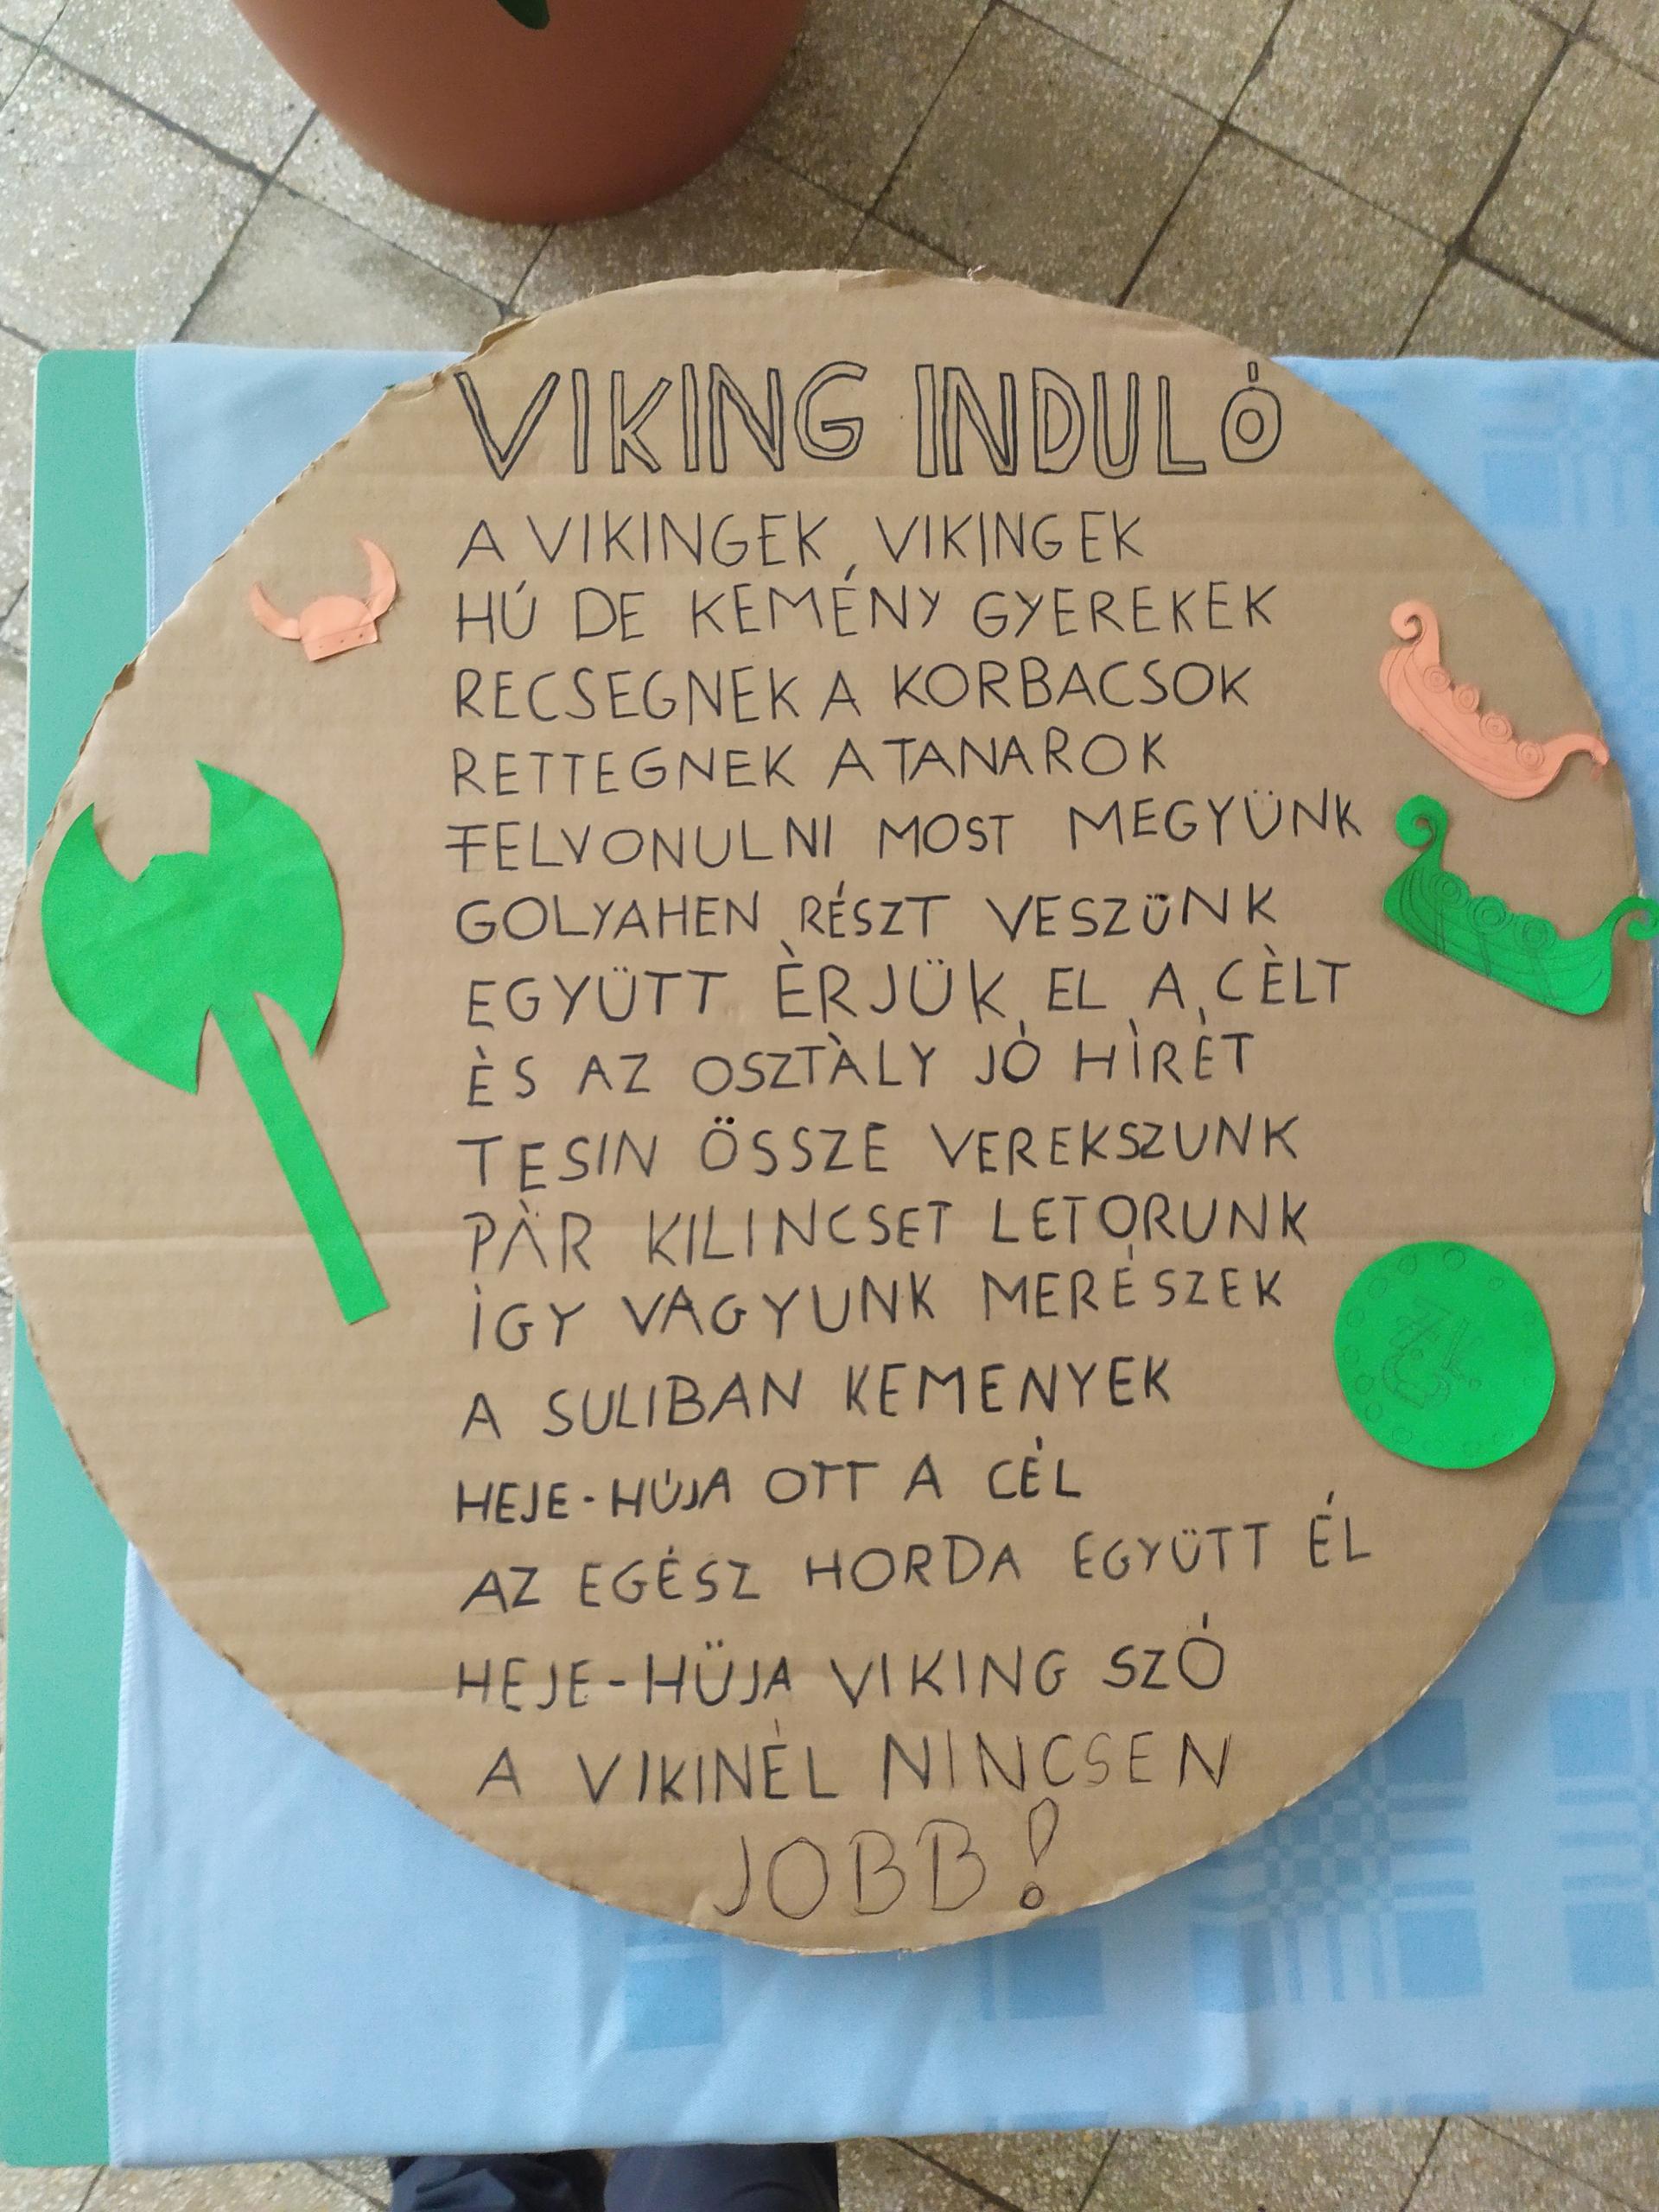 VIKING INDULÓ
A VIKINGEK, VIKINGEK
HÚ DE KEMÉNY GYEREKEK
RECSEGNEK A KORBACSOK
RETTEGNEK A TANAROK
FELVONULNI MOST MEGYÜNK
GOLYAHEN RÉSZT VESZÜNK
EGYÜTT ÈRJÜK EL A CÈLT
ÈS AZ OSZTÀLY JÓ HÌRÈT
TESIN ÖSSZE VEREKSZUNK
PÀR KILINCSET LETORUNK
ÌGY VAGYUNK MERÉSZEK
A SULIBAN KEMENYEK
HEJE-HÚJA OTT A CÉL
AZ EGÉSZ HORDA EGYÜTT ÉL
HEJE-HÜJA VIKING SZÓ
A VIKINÉL NINCSEN
JOBB!